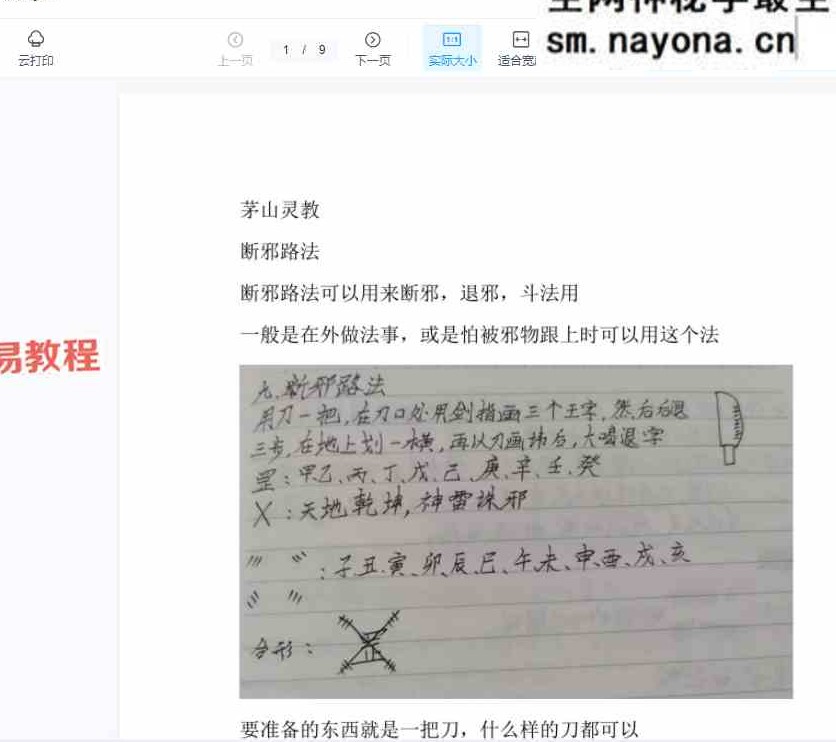 sm.nayona.cn
云打印
上一页
1 / 9
下一页
实际大小
适合宽
易教程
茅山灵教
断邪路法
断邪路法可以用来断邪，退邪，斗法用
一般是在外做法事，或是怕被邪物跟上时可以用这个法
九.断邪路法
用刀一把,在刀口处用剑指画三个王字,然后后退
三步,在地上划一横,再以刀画讳后,大喝退字
罡:甲、乙、丙、丁、戊、己、庚、辛、壬、癸
X:天地乾坤,神雷诛邪
:子、丑、寅、卯、辰、巳、午、未、申、酉、戌、亥
合形:
要准备的东西就是一把刀，什么样的刀都可以